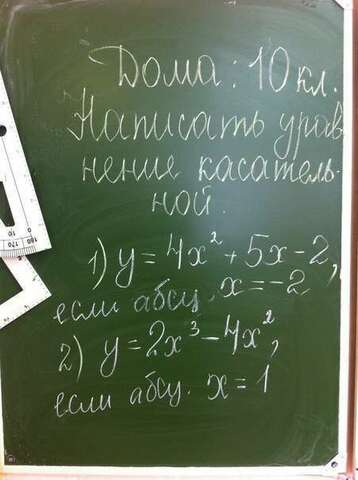 Дома: 10 кл.
Написать урав
нение касатель-
ной.
1) y = 4x² + 5x - 2,
если абсц. x = -2
2) y = 2x³ - 4x²,
если абсц. x = 1